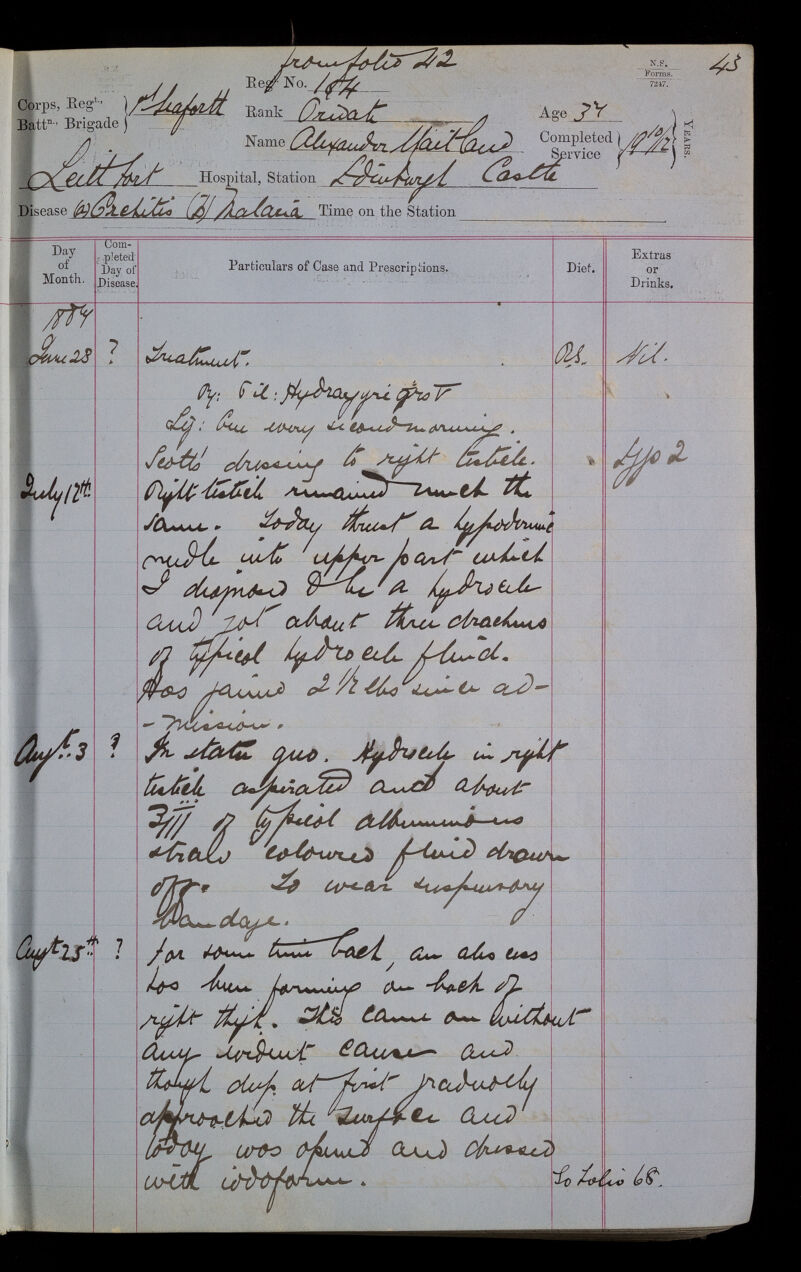 from folio 42
43
N.S.
Forms.
7247.
Corps, Regt.,
Battn., Brigade } 1st Seaforth
Regl No. 184
Rank Private
Age 37
Name Alexander Maitland
Completed Service } 19 10/12 } YEARS.
Leith Fort Hospital, Station Edinburgh Castle
Disease (a) Orchitis (b) Malaria Time on the Station
Day of Month.
Completed Day of Disease.
Particulars of Case and Prescriptions.
Diet.
Extras or Drinks.
1887
June 28 ? Treatment. R.S. Nil.
Rx: Pil: Hydrargyri gr⁠s⁠t
Sig: One every second morning.
Scott's dressing to right testicle. Eggs 2
July 12th Right testicle remained much the
same. Today thrust a hypodermic
needle into upper part which
I diagnosed to be a hydrocele
and got about three drachms
of typical hydrocele fluid.
Has gained 2 1/2 lbs since ad-
-mission.
Augt. 3 ? In statu quo. Hydrocele in right
testicle aspirated and about
ʒiii of typical albuminous
straw coloured fluid drawn
off. To wear suspensory
bandage.
Augt 25th ? For some time back, an abscess
has been forming on back of
right thigh. This came on without
any evident cause and
though deep at first gradually
approached the surface and
today was opened and dressed
with iodoform. To Folio 68.